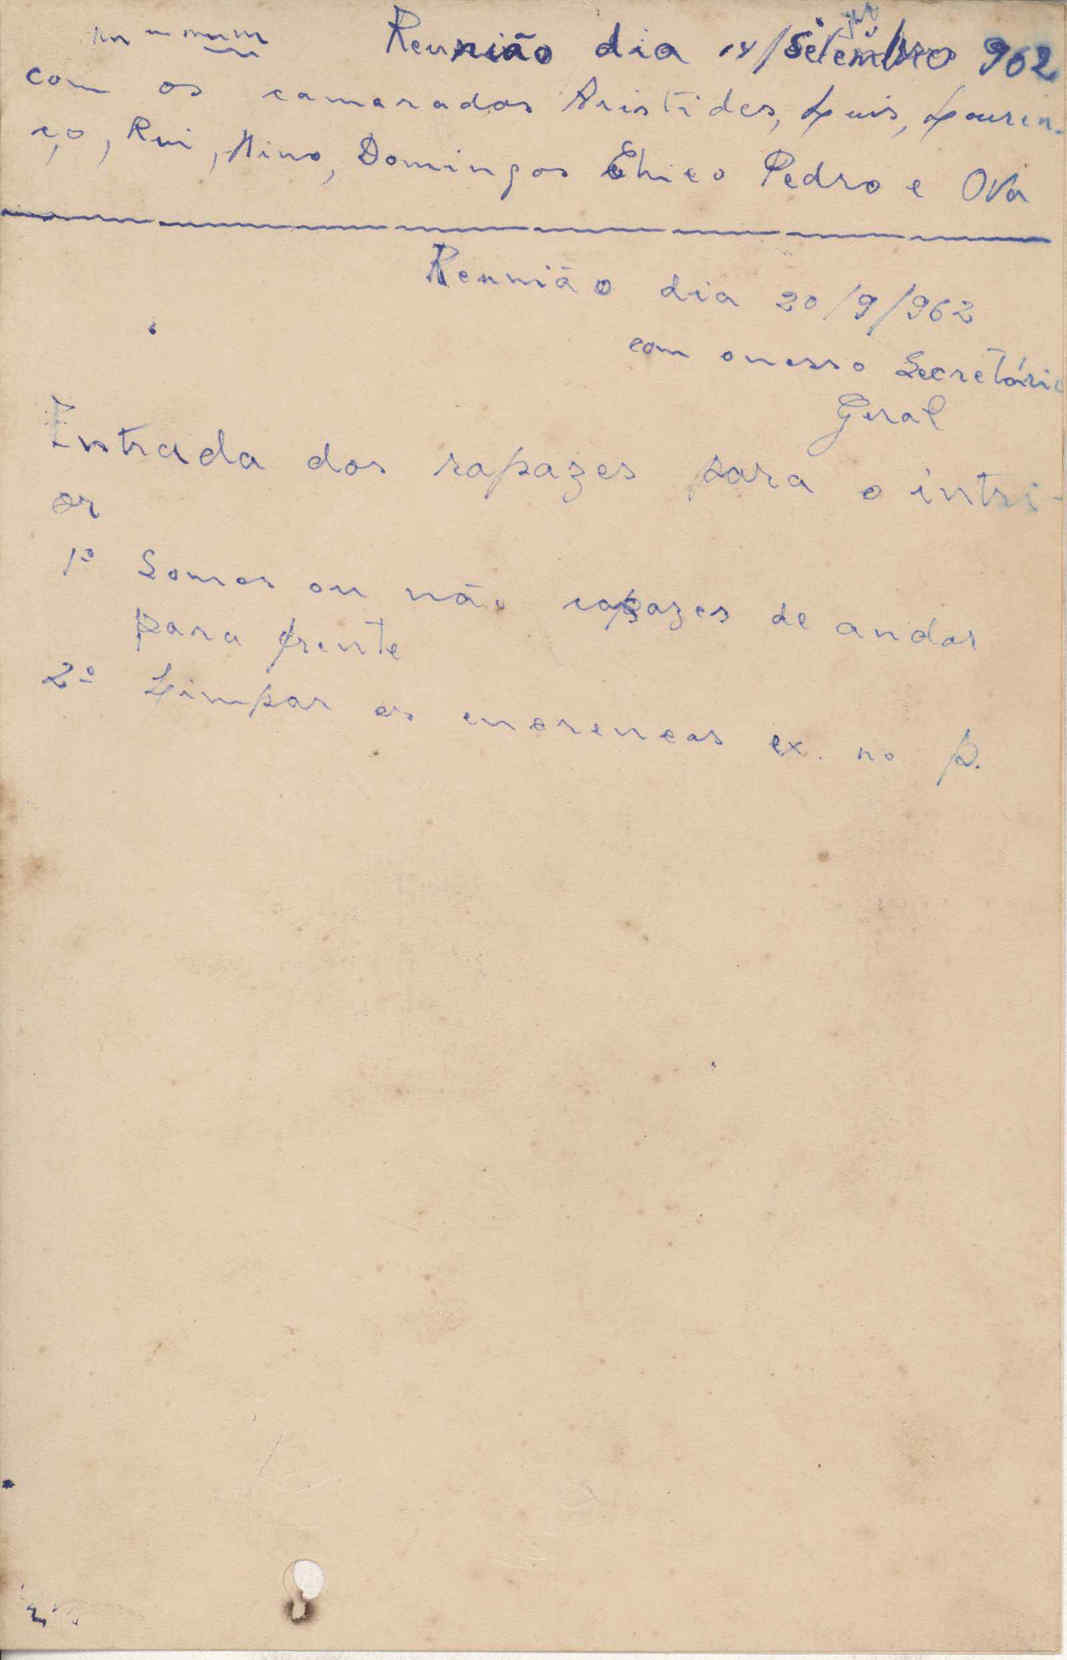 Reunião dia 14/Setembro 962
com os camaradas Aristides, Luis, Louren-
ço, Rui, Nino, Domingos Chico Pedro e
Reunião dia 20/9/962
com o nosso Secretário
Geral
Entrada dos rapazes para o intri-
or
1º Somos ou não capazes de andar
para frente
2º Limpar as encrencas ex. no p.